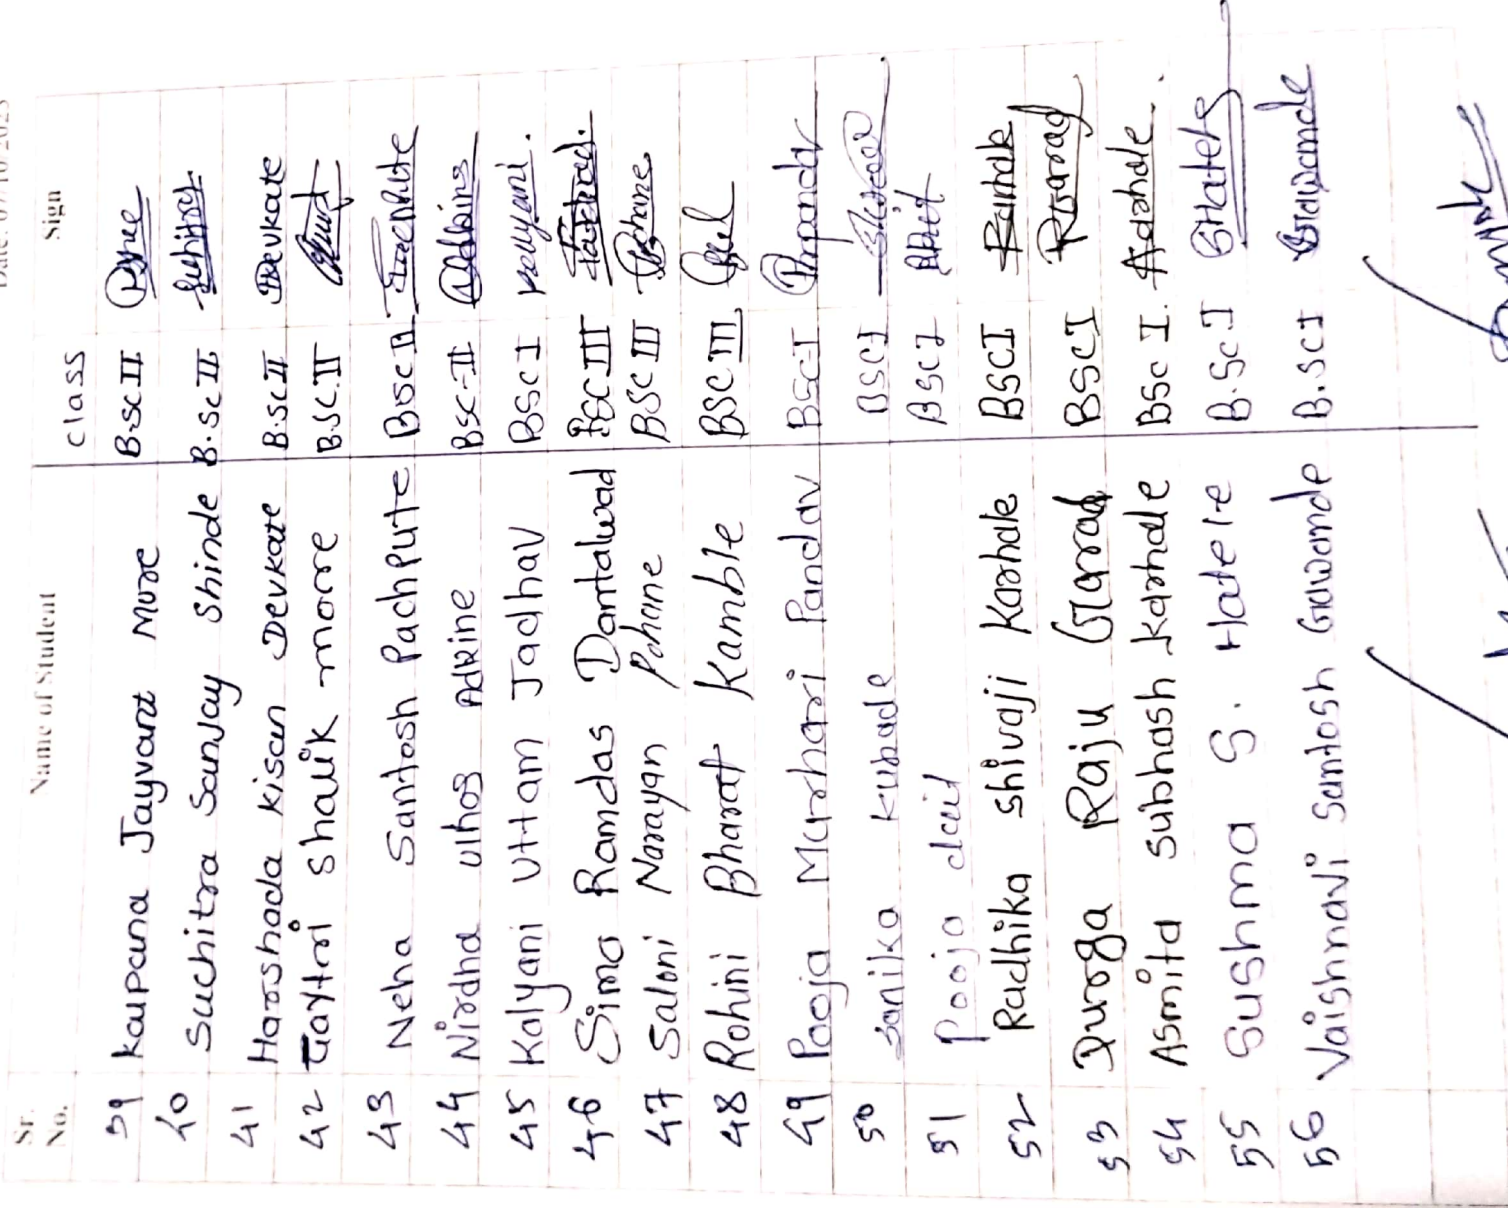 Sr. No. Name of Student class Sign
39 Kalpana Jayvant More B.sc II
40 Suchitra Sanjay Shinde B.sc II
41 Harshada Kisan Devkate B.sc II Devkate
42 Gaytri shalik more B.sc.II
43 Neha Santosh Pachpute Bsc II
44 Nirdha Adkine Bsc-II
45 Kalyani Uttam Jadhav BSC I kalyani.
46 Sima Ramdas Dantalwad BSC III
47 Saloni Narayan Pohane BSC III
48 Rohini Bharat Kamble BSC III
49 Pooja Murhari Pandav BSCI
50 sanika kubade BSCI
51 pooja BSCI
52 Radhika shivaji Karhale BSCI
53 Durga Raju Garad BSCI
54 Asmita subhash karhale BSc I.
55 Sushma S. Hatele B.Sc I SHatele
56 Vaishnavi Santosh Gawande B.SCI Gawande